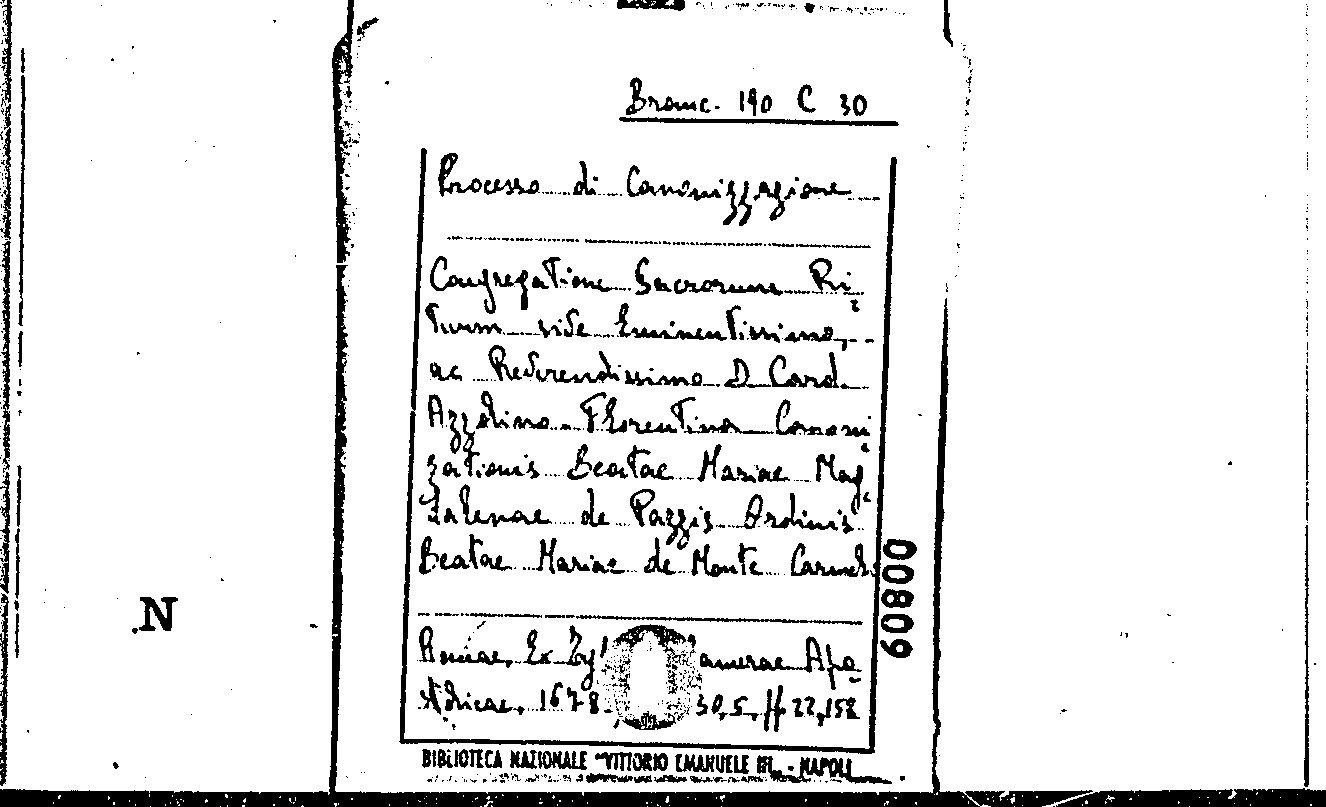 Branc. 190 C 30
Processo di Canonizzazione
Congregatione Sacrorum Ri
tuum side Eminentissimo,
ac Reverendissimo D Card.
Azzolino Florentina Canoni
zationis Beatae Mariae Mag
dalenae de Pazzis Ordinis
Beatae Mariae de Monte Carmel.
00809
N
Romae, Ex Ty amerae Apo
stolicae, 1678. 30,5, ff 22,158
BIBLIOTECA NAZIONALE "VITTORIO EMANUELE III" - NAPOLI